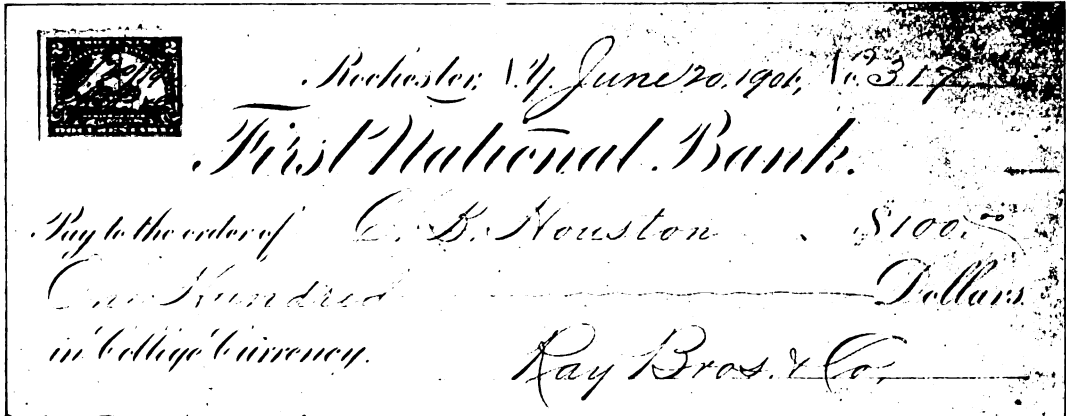 Rochester, N.Y. June 20, 1901, No. 317
First National Bank.
Pay to the order of C. B. Houston $100.00
One Hundred Dollars
in College Currency.
Ray Bros. & Co.